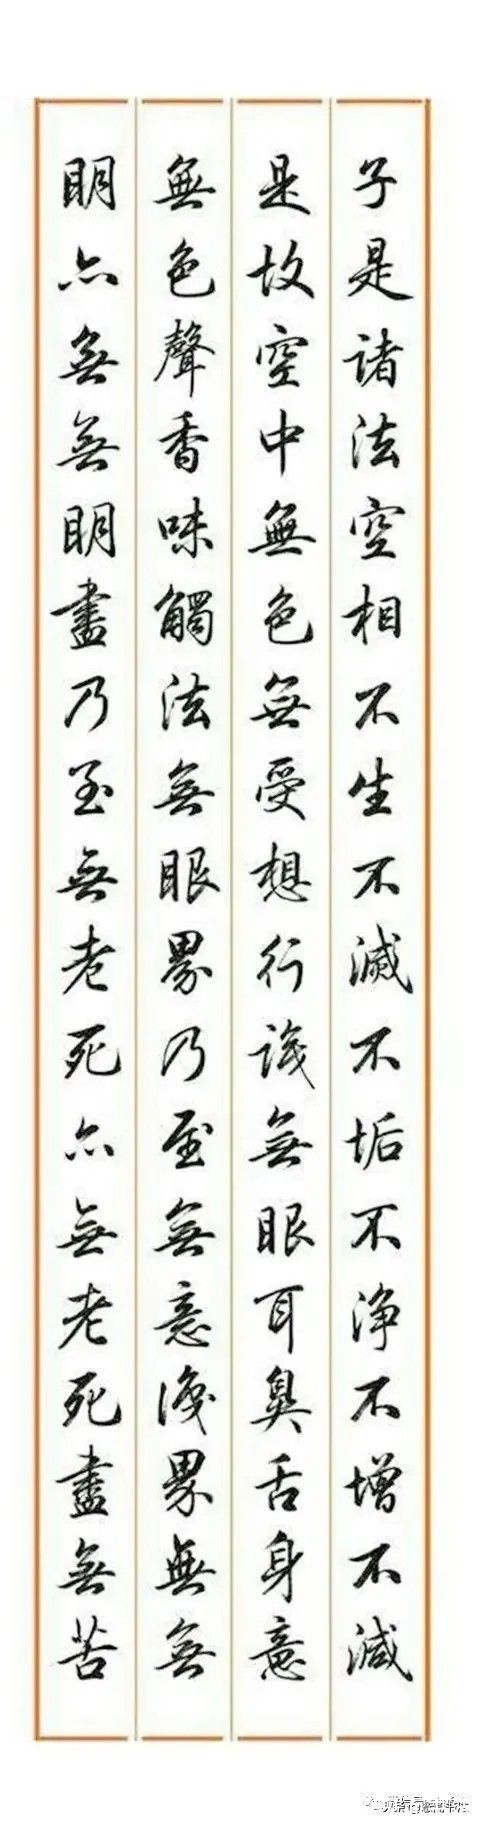 子是诸法空相不生不滅不垢不浄不增不減
是故空中無色無受想行識無眼耳鼻舌身意
無色聲香味觸法無眼界乃至無意識界無無
明亦無無明盡乃至無老死亦無老死盡無苦